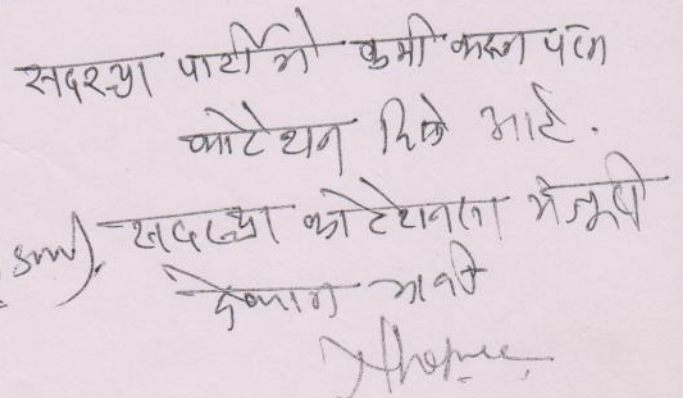 सदरच्या पार्टीने कमी करून परत
कोटेशन दिले आहे.
सदरच्या कोटेशनला मंजूरी
देण्यात यावी